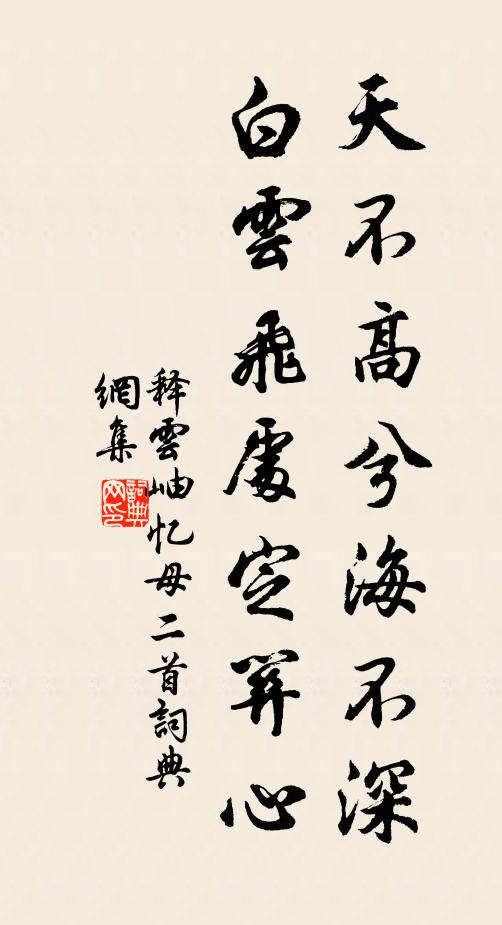 天不高兮海不深
白雲飛處定關心
释雲岫忆母二首詞典
網集
詞典
网印